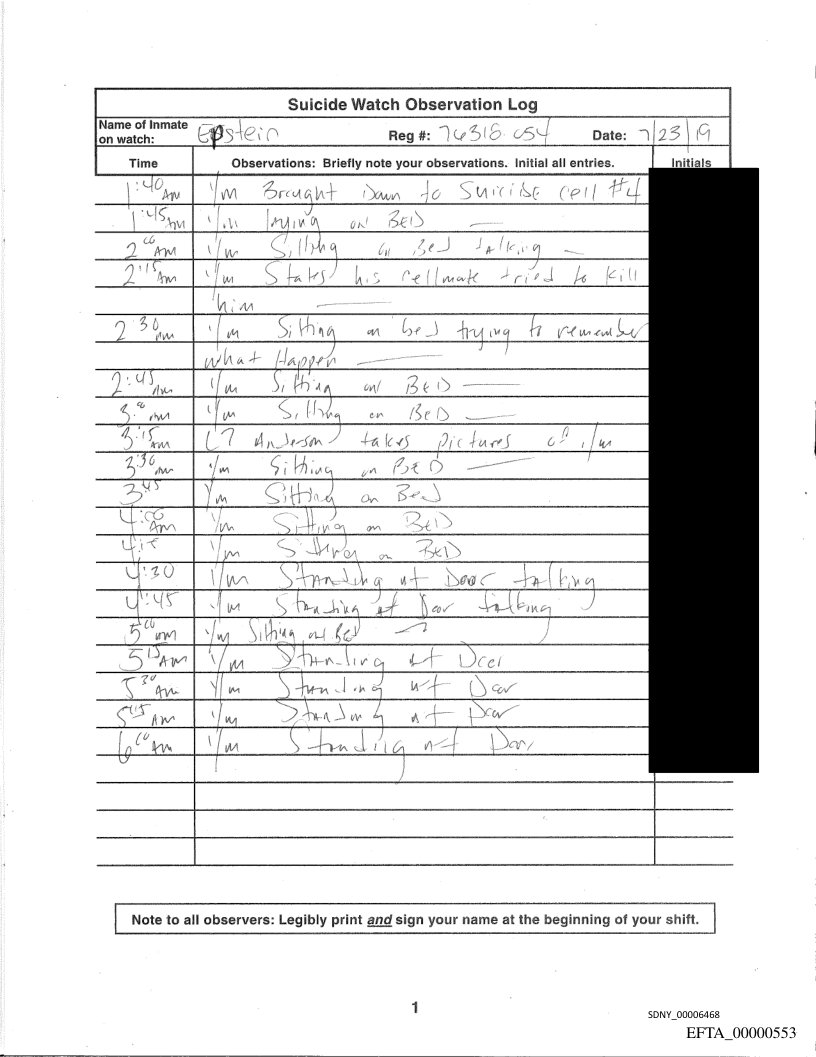 Suicide Watch Observation Log
Name of Inmate on watch: Epstein Reg #: 76318-054 Date: 7/23/19
Time Observations: Briefly note your observations. Initial all entries. Initials
1:40 AM I/m Brought Down to Suicide cell #4
1:45 AM I/m laying on BED
2:00 AM I/m Sitting on Bed talking
2:15 Am I/m States his cellmate tried to kill
him
2:30 Am I/m Sitting on bed trying to remember
what Happen
2:45 Am I/m Sitting on BED
3:00 Am I/m Sitting on BED
3:15 Am LT Anderson takes pictures of I/m
3:30 Am I/m Sitting on BED
3:45 I/m Sitting on Bed
4:00 Am I/m Sitting on BED
4:15 I/m Sitting on BED
4:30 I/m Standing at Door talking
4:45 I/m Standing at Door talking
5:00 am I/m Sitting on Bed
5:15 AM I/m Standing at Door
5:30 Am I/m Standing at Door
Am I/m Standing at Door
6:00 Am I/m Standing at Door
Note to all observers: Legibly print and sign your name at the beginning of your shift.
1
SDNY_00006468
EFTA_00000553